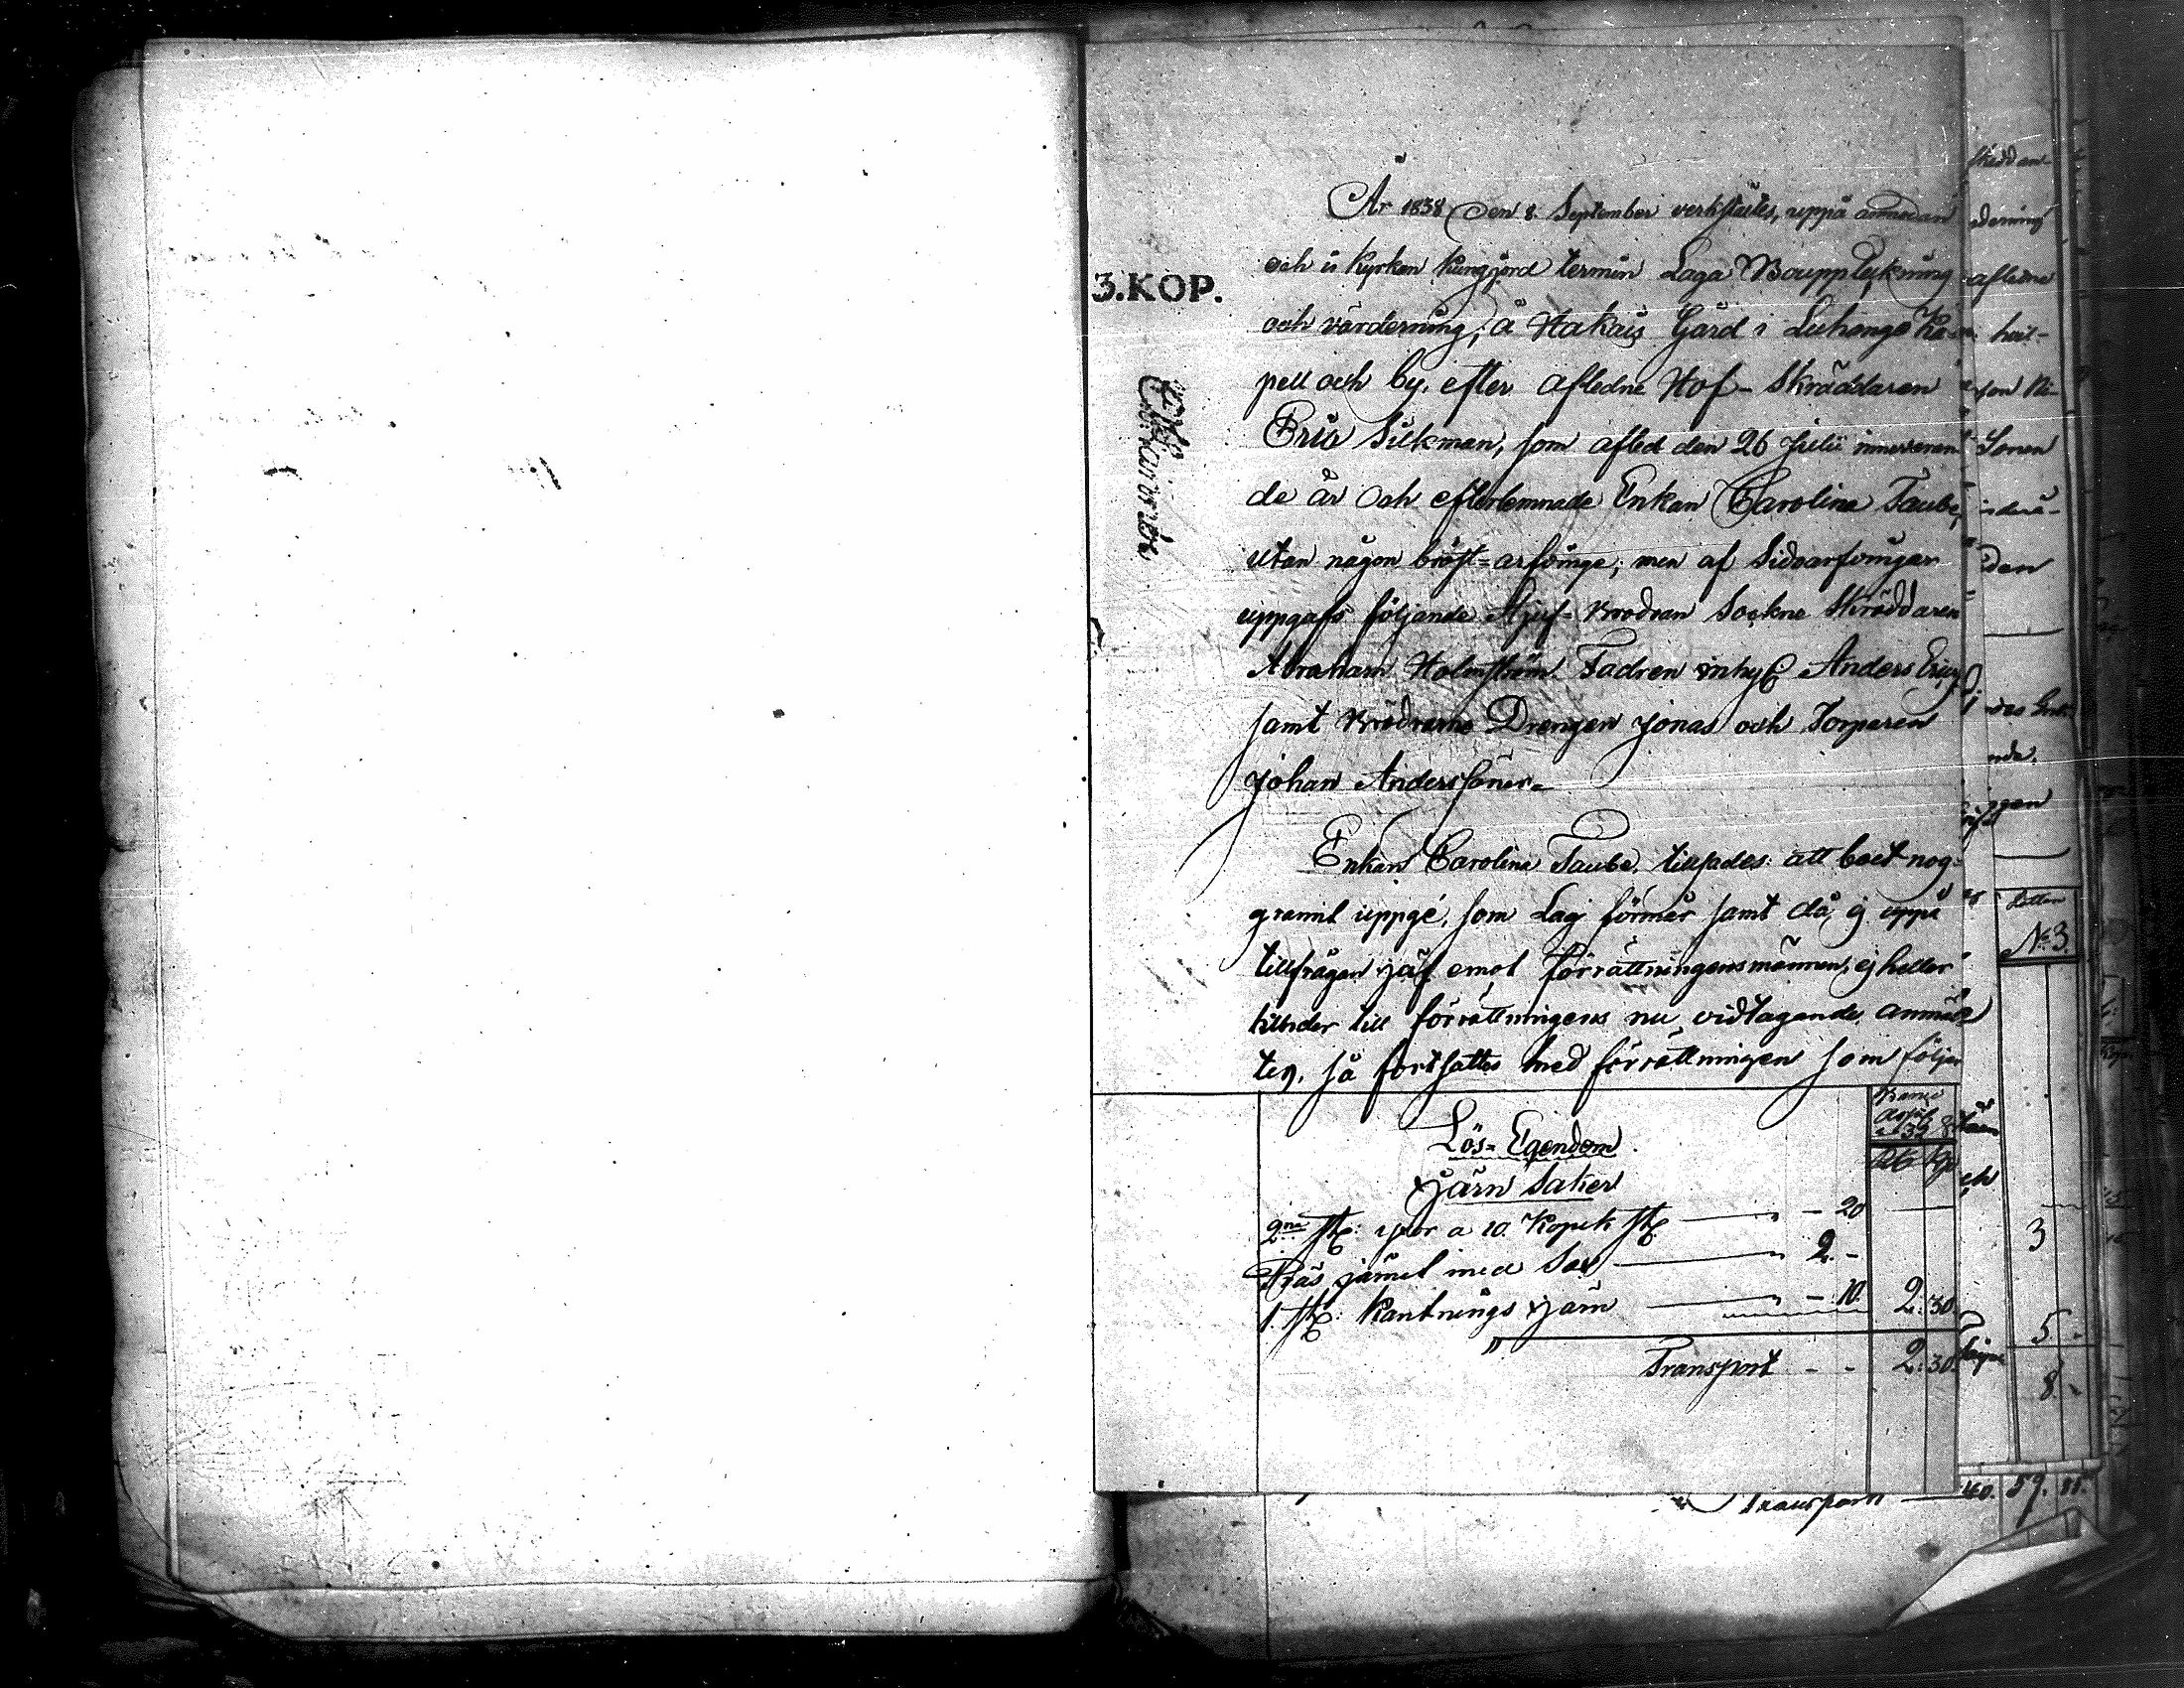 År 1838 den 8 September verkstältes, uppå anmodan
och i Kyrkan kungjord termin Laga Boupptekning
och värdering, å Hakais Gård i Luhango Ka-
pell och by, efter afledne Hof-Skräddaren
Eric Silkman, som afled den 26 Julii innevaran-
de år och efterlemnade Enkan Carolina Taube,
utan någon bröst-arfvinge; men af Sidoarfvingar
uppgafs följande Styf-Brodran Sockne Skräddaren
Abraham Holmström. Fadren inhys Anders Ericss
samt Bröderne Drengen Jonas och Torparen
Johan Anderssöner.
Enkan Carolina Taube, tillsades att boet nog-
grannt uppgé, som Lag förmår samt då ej uppå
tillfrågan jäf emot förrättningensmännen, ej heller
hinder till förrättningens nu vidtagande anmäl-
tes, så fortsattes med förrättningen som följer
3.KOP.
Lös-Egendom
Järn Saker
Rub Kop
2ne st: yxor a 10 Kopek st - 20
Präs järnet med 2 -
1 st: Kantnings järn - 10. 2:30.
Transport - - 2:30.
skeddan
dering
afledne
Sonen
den
Litter
No 3
3
5 -
8 -
Transport 40. 59.